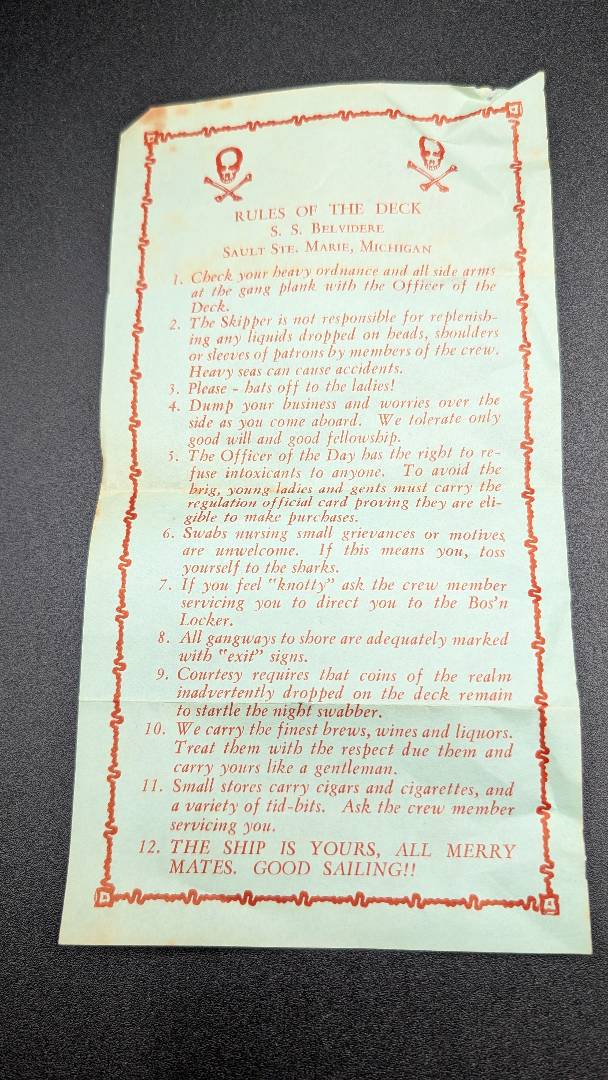 RULES OF THE DECK
S. S. BELVIDERE
SAULT STE. MARIE, MICHIGAN
1. Check your heavy ordnance and all side arms
at the gang plank with the Officer of the
Deck.
2. The Skipper is not responsible for replenish-
ing any liquids dropped on heads, shoulders
or sleeves of patrons by members of the crew.
Heavy seas can cause accidents.
3. Please - hats off to the ladies!
4. Dump your business and worries over the
side as you come aboard. We tolerate only
good will and good fellowship.
5. The Officer of the Day has the right to re-
fuse intoxicants to anyone. To avoid the
brig, young ladies and gents must carry the
regulation official card proving they are eli-
gible to make purchases.
6. Swabs nursing small grievances or motives
are unwelcome. If this means you, toss
yourself to the sharks.
7. If you feel "knotty" ask the crew member
servicing you to direct you to the Bos'n
Locker.
8. All gangways to shore are adequately marked
with "exit" signs.
9. Courtesy requires that coins of the realm
inadvertently dropped on the deck remain
to startle the night swabber.
10. We carry the finest brews, wines and liquors.
Treat them with the respect due them and
carry yours like a gentleman.
11. Small stores carry cigars and cigarettes, and
a variety of tid-bits. Ask the crew member
servicing you.
12. THE SHIP IS YOURS, ALL MERRY
MATES. GOOD SAILING!!